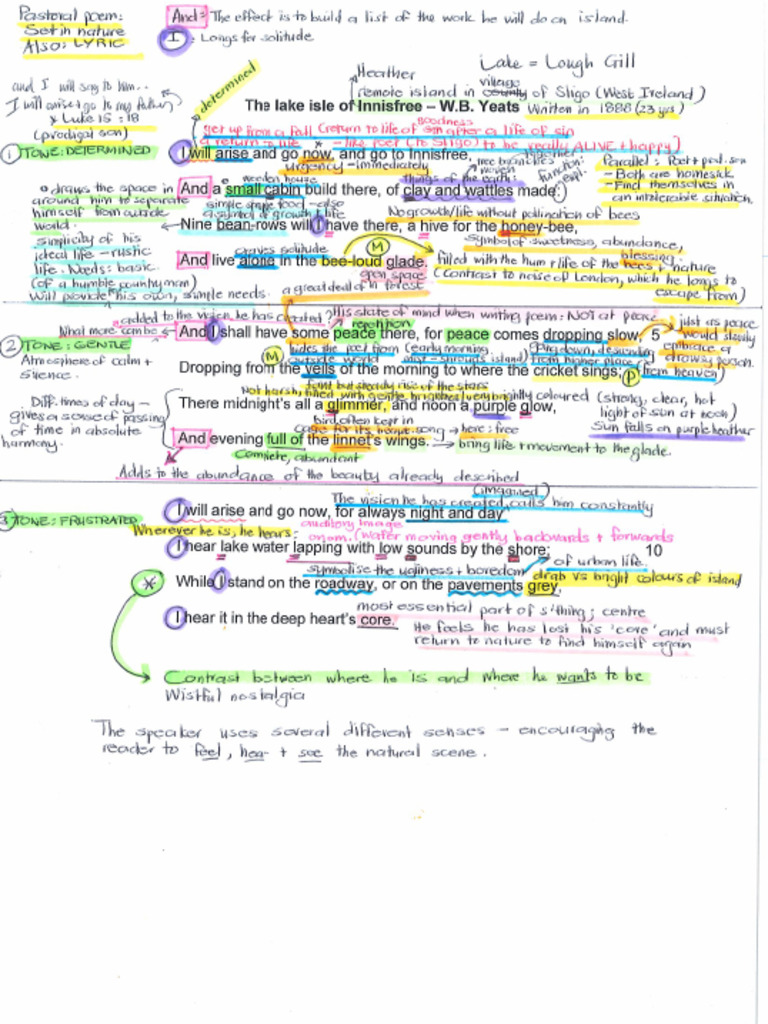 Pastoral poem:
Set in nature
Also: LYRIC
And = The effect is to build a list of the work he will do on island.
I : Longs for solitude
Lake = Lough Gill
Heather
village
remote island in county of Sligo (West Ireland)
determined
The lake isle of Innisfree – W.B. Yeats Written in 1888 (23 yrs)
and I will say to him..
I will arise + go to my father
* Luke 15:18
(prodigal son)
goodness
get up from a fall (return to life of sin after a life of sin
a return to life * - like poet (to Sligo) to be really ALIVE + happy)
1 TONE: DETERMINED
I will arise and go now, and go to Innisfree,
urgency - immediately
tree branches woven together
Parallel: Poet + pod. son
- Both are homesick
- Find themselves in
an intolerable situation.
wooden house
Things of the earth:
And a small cabin build there, of clay and wattles made:
° draws the space in
around him to separate
himself from outside
world.
simple food - also
a symbol of growth + life
No growth/life without pollination of bees
Nine bean-rows will I have there, a hive for the honey-bee,
simplicity of his
ideal life - rustic
life. Needs: basic.
(of a humble countryman)
Will provide his own, simple needs.
craves solitude
M
symbol of sweetness, abundance,
blessing
And live alone in the bee-loud glade.
filled with the hum + life of the bees + nature
(Contrast to noise of London, which he longs to
escape from)
open space
in forest
a great deal of
added to the vision he has created
His state of mind when writing poem: NOT at peace
What more can be
repetition
And I shall have some peace there, for peace comes dropping slow, 5
just as peace
would slowly
embrace a
drowsy person.
2 TONE: GENTLE
Atmosphere of calm +
silence.
M
hides the poet from (early morning
outside world mist - shrouds island)
going down, descending
from higher place
(from heaven)
Dropping from the veils of the morning to where the cricket sings;
P
faint but steady rise of the stars
Not harsh; filled with gentle brightness
very brightly coloured (strong, clear, hot
light of sun at noon)
Sun falls on purple heather
Diff. times of day -
gives a sense of passing
of time in absolute
harmony.
There midnight's all a glimmer, and noon a purple glow,
bird often kept in
cage for its unique song → here: free
And evening full of the linnet's wings. → bring life + movement to the glade.
Complete, abundant
Adds to the abundance of the beauty already described
(imagined)
The vision he has created calls him constantly
I will arise and go now, for always night and day
3 TONE: FRUSTRATED
Wherever he is, he hears:
auditory image
onom. (water moving gently backwards + forwards
I hear lake water lapping with low sounds by the shore; 10
symbolise the ugliness + boredom of urban life.
drab vs bright colours of island
* While I stand on the roadway, or on the pavements grey,
most essential part of s'thing; centre
I hear it in the deep heart's core.
He feels he has lost his 'core' and must
return to nature to find himself again
Contrast between where he is and where he wants to be
Wistful nostalgia
The speaker uses several different senses - encouraging the
reader to feel, hear + see the natural scene.